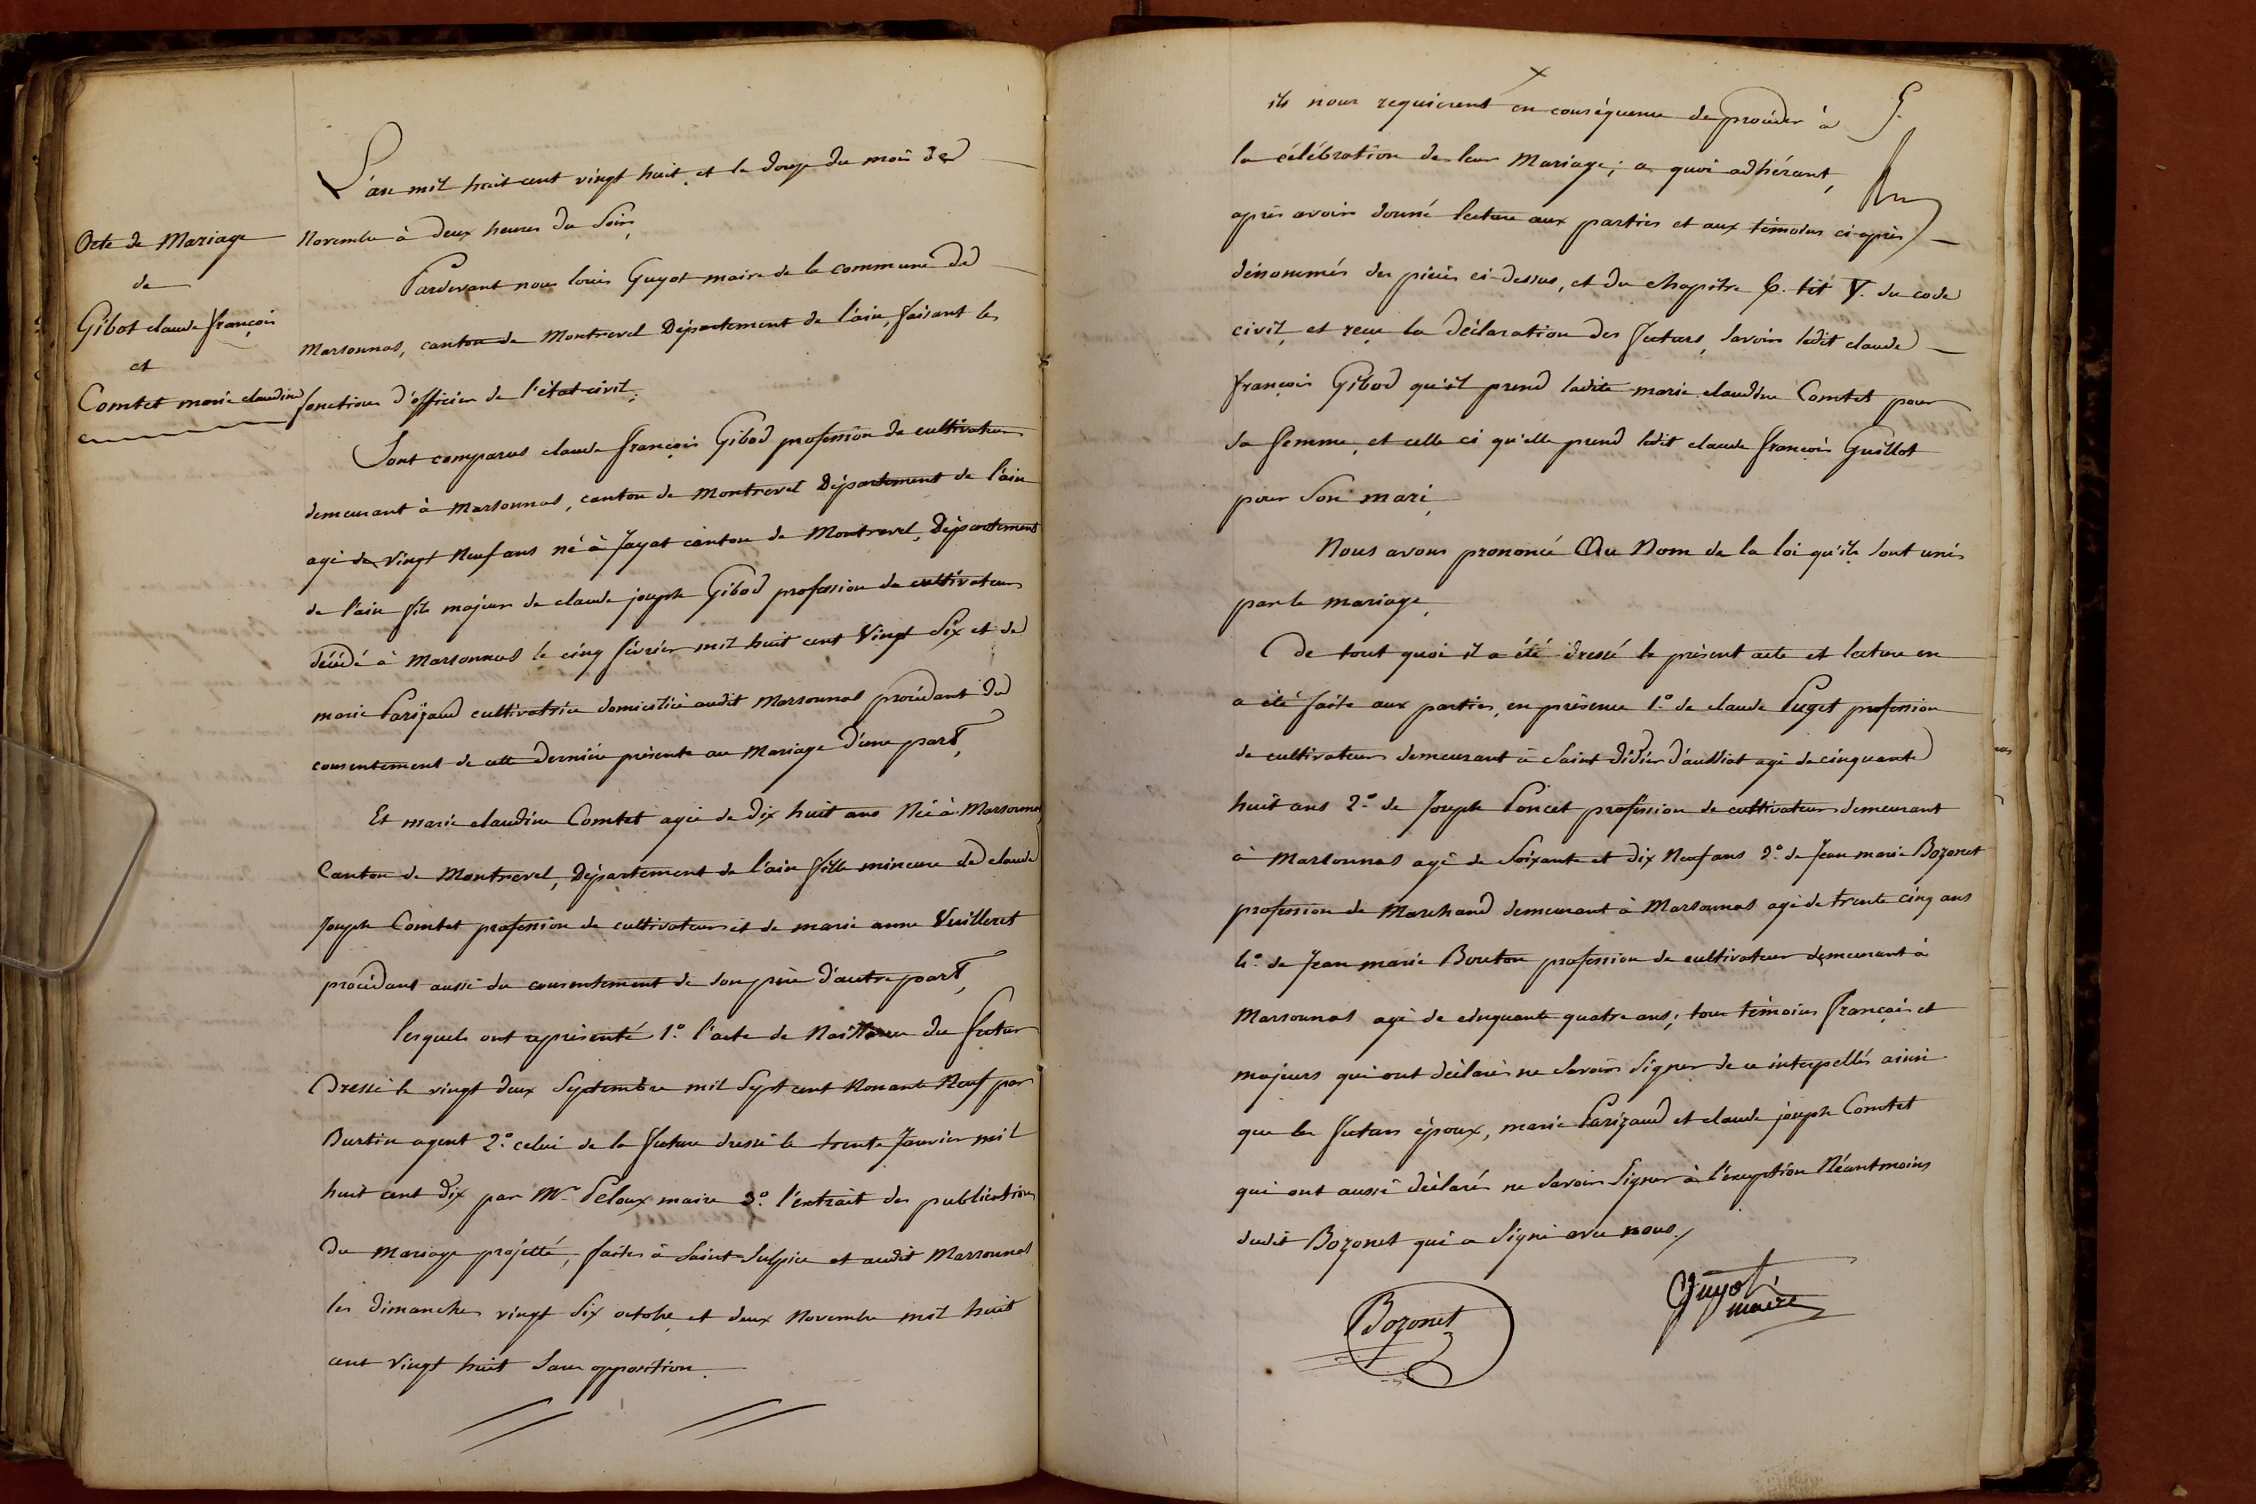 Acte de Mariage
de
Gibot claude françois
et
Comtet marie claudine
L'an mil huit cent vingt huit et le douze du mois de
Novembre à deux heures du Soir,
Pardevant nous louis Guyot maire de la commune de
Marsonnas, canton de Montrevel Département de l'ain, faisant les
fonctions d'officier de l'état civil;
Sont comparus claude françois Gibod profession de cultivateur
demeurant à Marsonnas, canton de Montrevel Département de l'ain
agé de vingt Neuf ans né à Jayat canton de Montrevel, Département
de l'ain fils majeur de claude joseph Gibod profession de cultivateur
décédé à Marsonnas le cinq février mil huit cent Vingt Six et de
marie Parizaud cultivatrice domiciliée audit Marsonnas procédant du
consentement de cette dernière présente au Mariage d'une part,
Et marie claudine Comtet agée de dix huit ans Née à Marsonnas
Canton de Montrevel, Département de l'ain fille mineure de claude
Joseph Comtet profession de cultivateur et de marie anne Vuilleret
procédant aussi du consentement de son père d'autre part,
lesquels ont représenté 1.º l'acte de Naissance du futur
Dressé le vingt deux Septembre mil Sept cent Nonante Neuf par
Burtin agent 2.º celui de la future dressé le trente Janvier mil
huit cent dix par Mr Peloux maire 3.º l'extrait des publications
du Mariage projetté, faites à Saint Sulpice et audit Marsonnas
les dimanches vingt Six octobre et deux Novembre mil huit
cent Vingt huit Sans opposition.
ils nous requierent en conséquence de procéder à
la célébration de leur Mariage; a quoi adhérant,
après avoir donné lecture aux parties et aux témoins ci-après
dénommés des pièces ci-dessus, et du chapitre 6. tit V. du code
civil, et reçu la déclaration des futurs, Savoir ledit claude
françois Gibod qu'il prend ladite marie claudine Comtet pour
sa femme, et celle ci qu'elle prend ledit claude françois Guillot
pour Son mari,
Nous avons prononcé Au Nom de la loi qu'ils Sont unis
par le mariage,
De tout quoi il a été dressé le présent acte et lecture en
a été faite aux parties, en présence 1.º de claude Puget profession
de cultivateur demeurant à Saint didier d'aussiat agé de cinquante
huit ans 2.º de Joseph Poncet profession de cultivateur demeurant
à Marsonnas agé de Soixante et dix Neuf ans 3.º de Jean marie Bozonet
profession de Marchand demeurant à Marsonnas agé de trente cinq ans
4.º de Jean marie Bouton profession de cultivateur demeurant à
Marsonnas agé de cinquante quatre ans; tous témoins français et
majeurs qui ont déclarés ne Savoir Signer de ce interpellés ainsi
que les futurs époux, marie Parizaud et claude joseph Comtet
qui ont aussi déclarés ne Savoir Signer à l'éxception Néantmoins
dudit Bozonet qui a Signé avec nous.
Bozonet
Guyot
maire